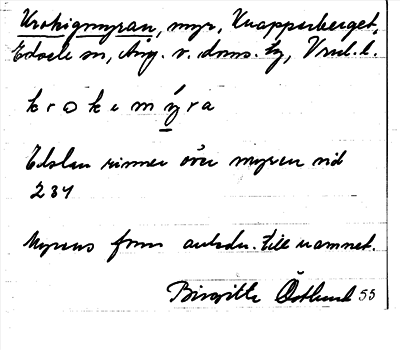 Krokigmyran, myr, Knapperberget,
Edsele sn, Ång. v. doms. tg, Vnl. l.
krokemýra
Edslan rinner över myren vid
234
Myrens form anledn. till namnet.
Birgitta Östlund 55